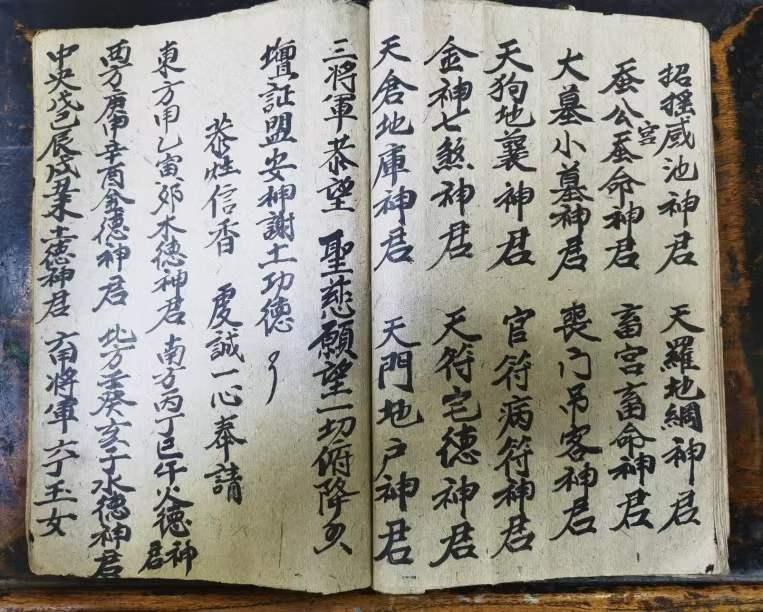 招摇咸池神君 天羅地網神君
蚕公蚕命神君 畜宫畜命神君
宫
大墓小墓神君 喪门吊客神君
天狗地襄神君 官符病符神君
金神七煞神君 天符宅德神君
天倉地庫神君 天門地户神君
三將軍恭望 聖慈願望一切俯降
壇証盟安神謝土功德
恭炷信香 虔誠一心奉請
東方甲乙寅卯木德神君 南方丙丁巳午火德神君
西方庚申辛酉金德神君 北方壬癸亥子水德神君
中央戊己辰戌丑未土德神君 六甲將軍六丁玉女